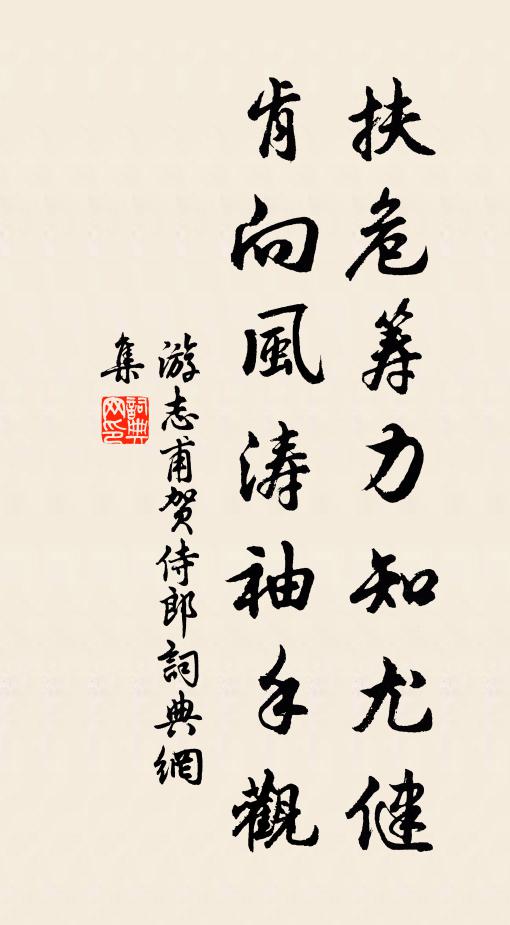 扶危筹力知尤健
肯向風涛袖手觀
游志甫贺侍郎詞典網
集
詞典网印